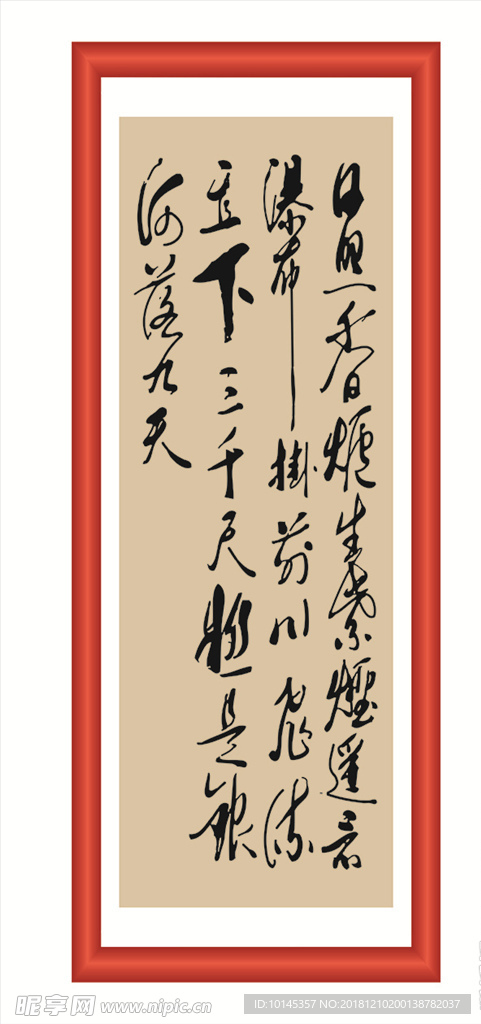 日照香爐生紫煙遥看
瀑布掛前川飛流
直下三千尺疑是銀
河落九天
昵享网 www.nipic.cn
ID:10145357 NO:20181210200138782037